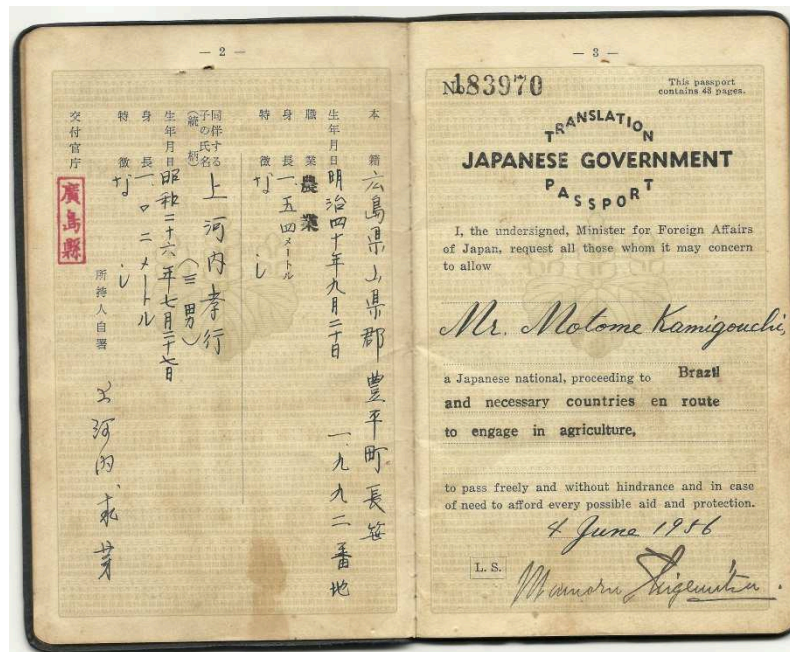 — 2 —
本籍 広島県山県郡豊平町長笹
一、九九二番地
生年月日 明治四十年九月二十日
職業 農業
身長 一.五四メートル
特徴 なし
同伴する子の氏名 上河内孝行
(続柄) (三男)
生年月日 昭和二十六年七月二十七日
身長 一.〇二メートル
特徴 なし
所持人自署 上河内求芽
交付官庁 廣島縣
— 3 —
No. 183970
This passport
contains 48 pages.
TRANSLATION
JAPANESE GOVERNMENT
PASSPORT
I, the undersigned, Minister for Foreign Affairs
of Japan, request all those whom it may concern
to allow
Mr. Motome Kamigouchi,
a Japanese national, proceeding to Brazil
and necessary countries en route
to engage in agriculture,
to pass freely and without hindrance and in case
of need to afford every possible aid and protection.
4 June 1956
L. S.
Mamoru Shigemitsu.